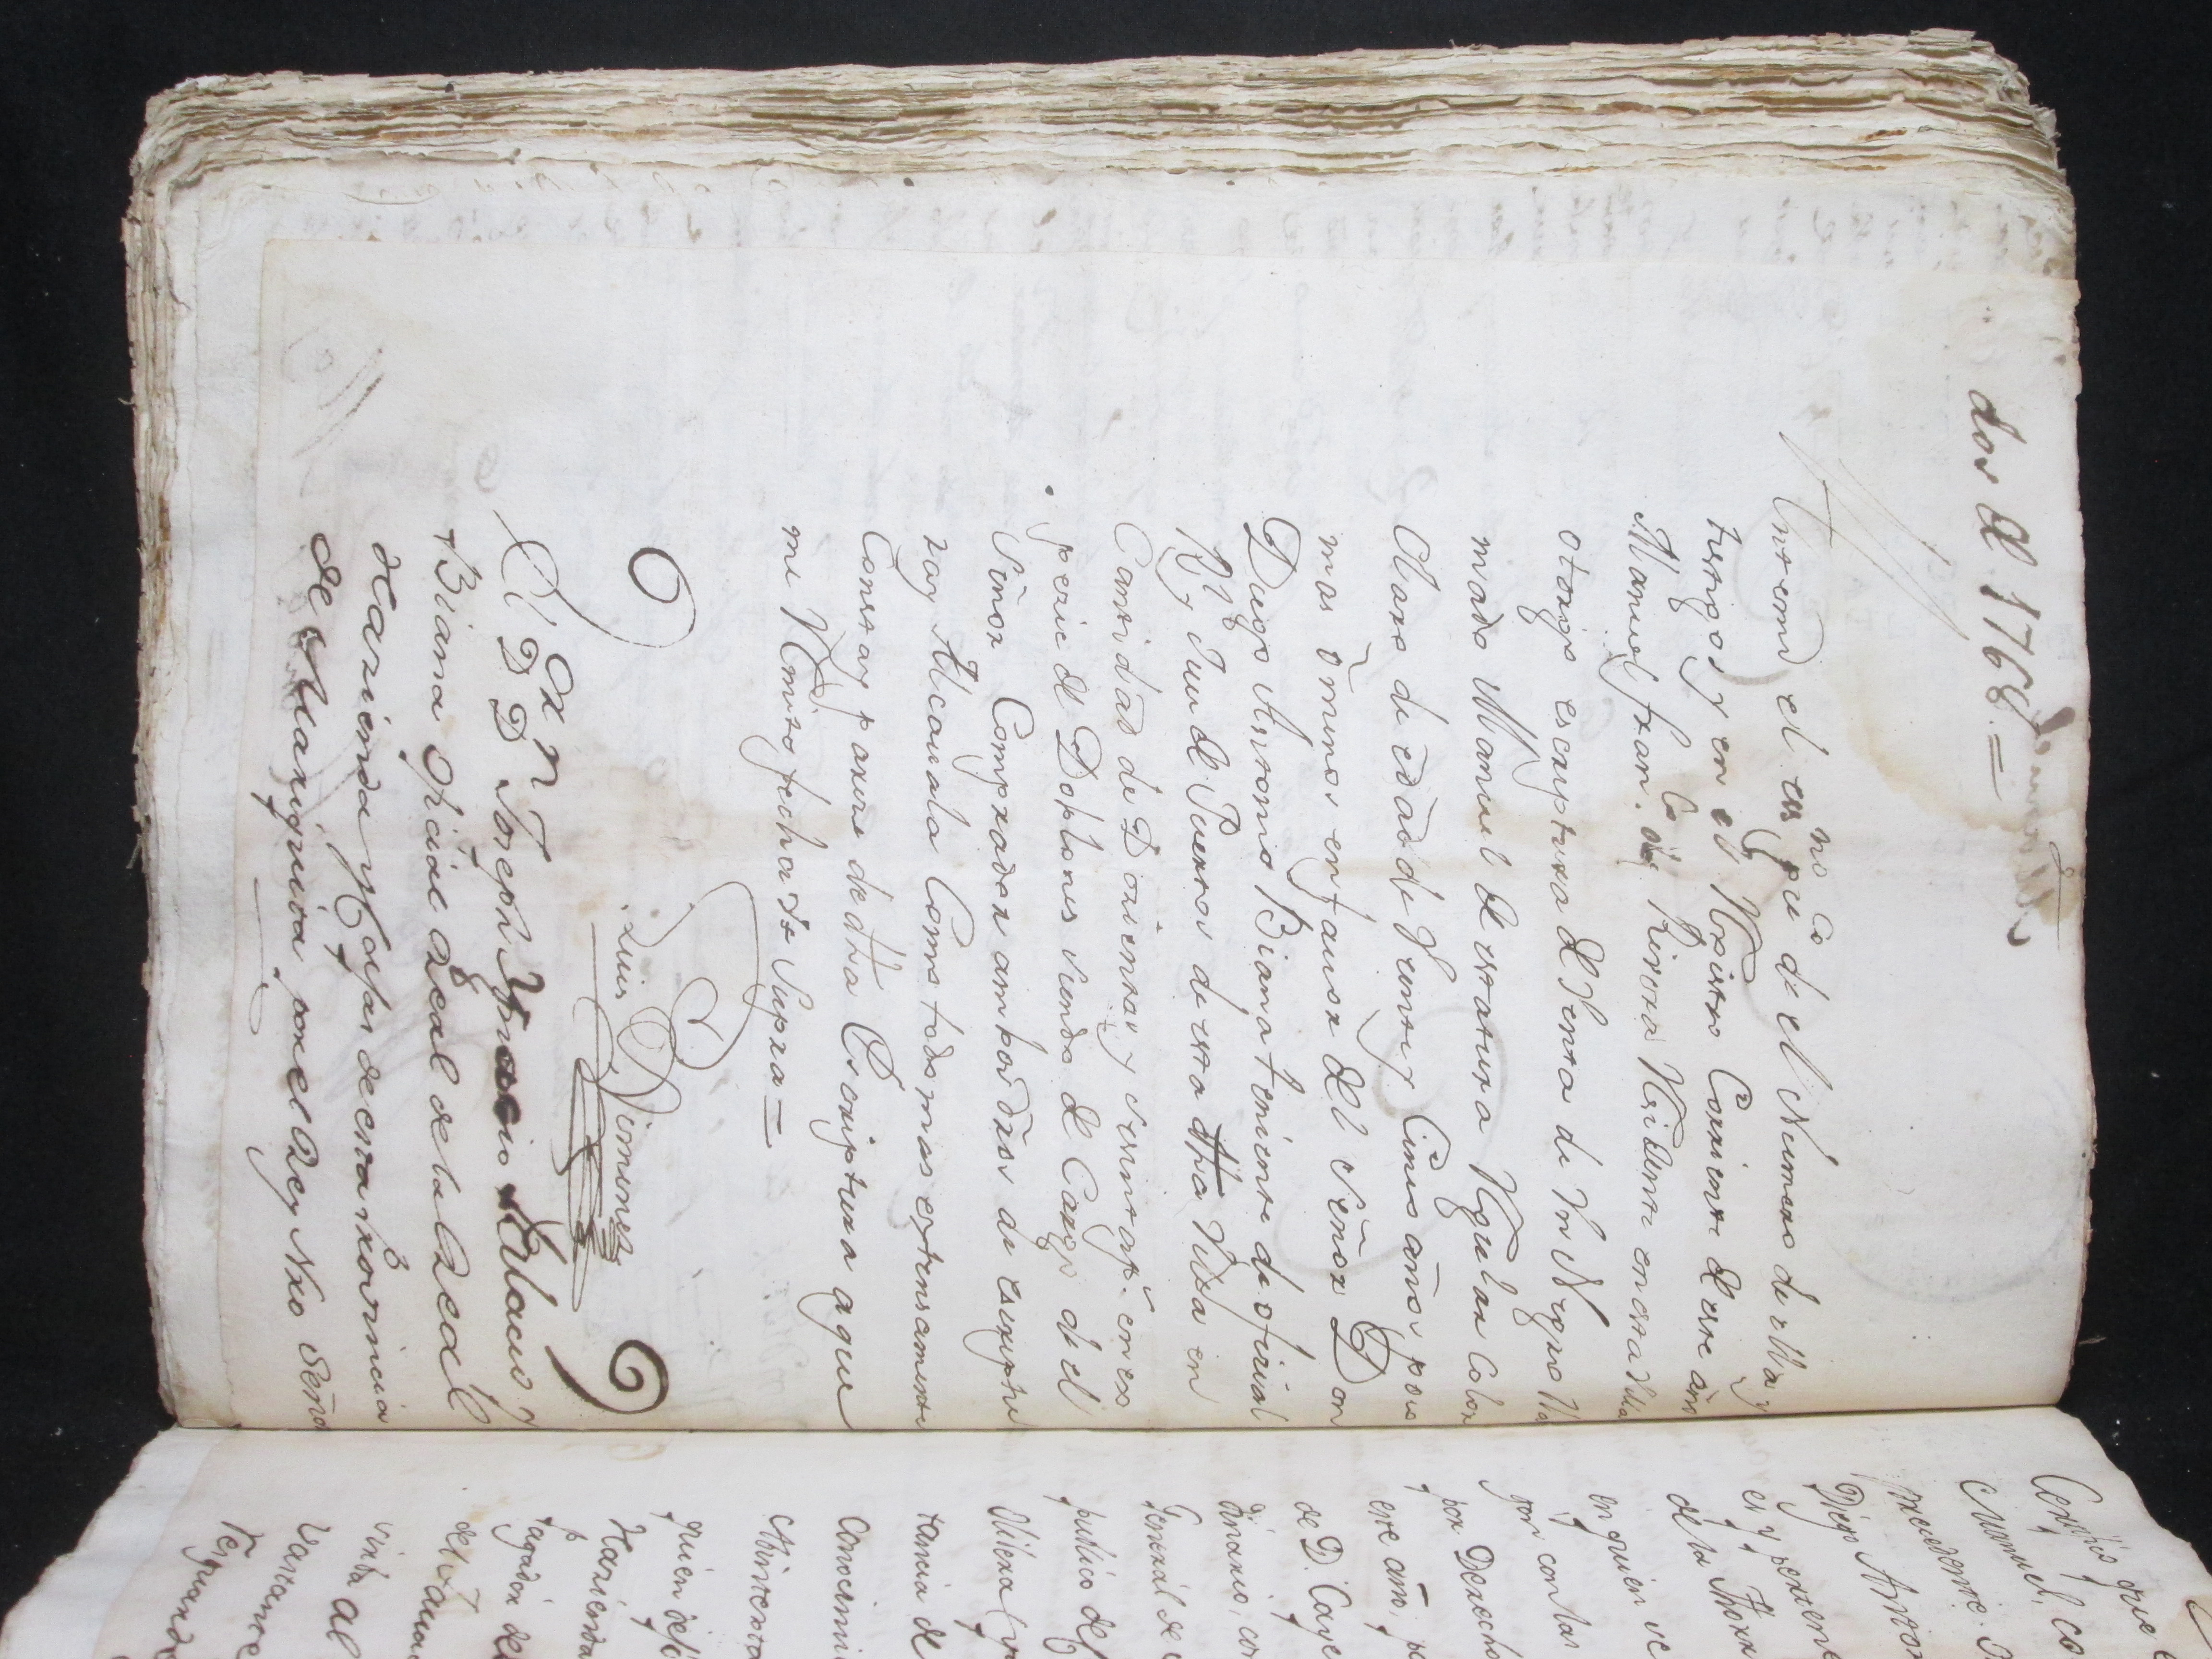 dos de 1768.=
Antemi el essno puco de el Numero de ella y
testigos y en el Registro Corriente de este año
Manuel Franco de Rivera Residente en esta Villa
otorgo escriptura de Venta de Vn Negro lla
mado Manuel de estatura Regular Color
Claro de edad de Veinte y Cinco años poco
mas ó menos en fauor del Señor Don
Diego Antonio Biana teniente de ofizial
Rl y Juez de Puertos de esta dha Villa en
Cantidad de Dozientos y sesenta ps. en es
pezie de Doblones siendo de Cargo de el
Señor Comprador ambos dros de escriptu
ra y Alcauala Como todo mas extensamente
Consta y pareze de dha Escriptura a que
me Remito fecha Vt Supra =
Luis Ximenez
El Dor Dn Joseph Ygnacio Palacio y
Biana Oficial Real de la Real
Hazienda y Cajas de esta Provincia
de Mariquita por el Rey Nro Señor
Certifico que
Manuel, co
precedente.
Diego Anton
es y pertene
de la Thorr
en quien se
gon con las
por Derecho
este año, po
de D. Caye
dinario, con
General de
publico de
Olilera y
tancia de
conocimi
Abintesta
quien dejó
Hazienda
Pagadór de
del Jaua
sirba al
Vastante
Resguardo